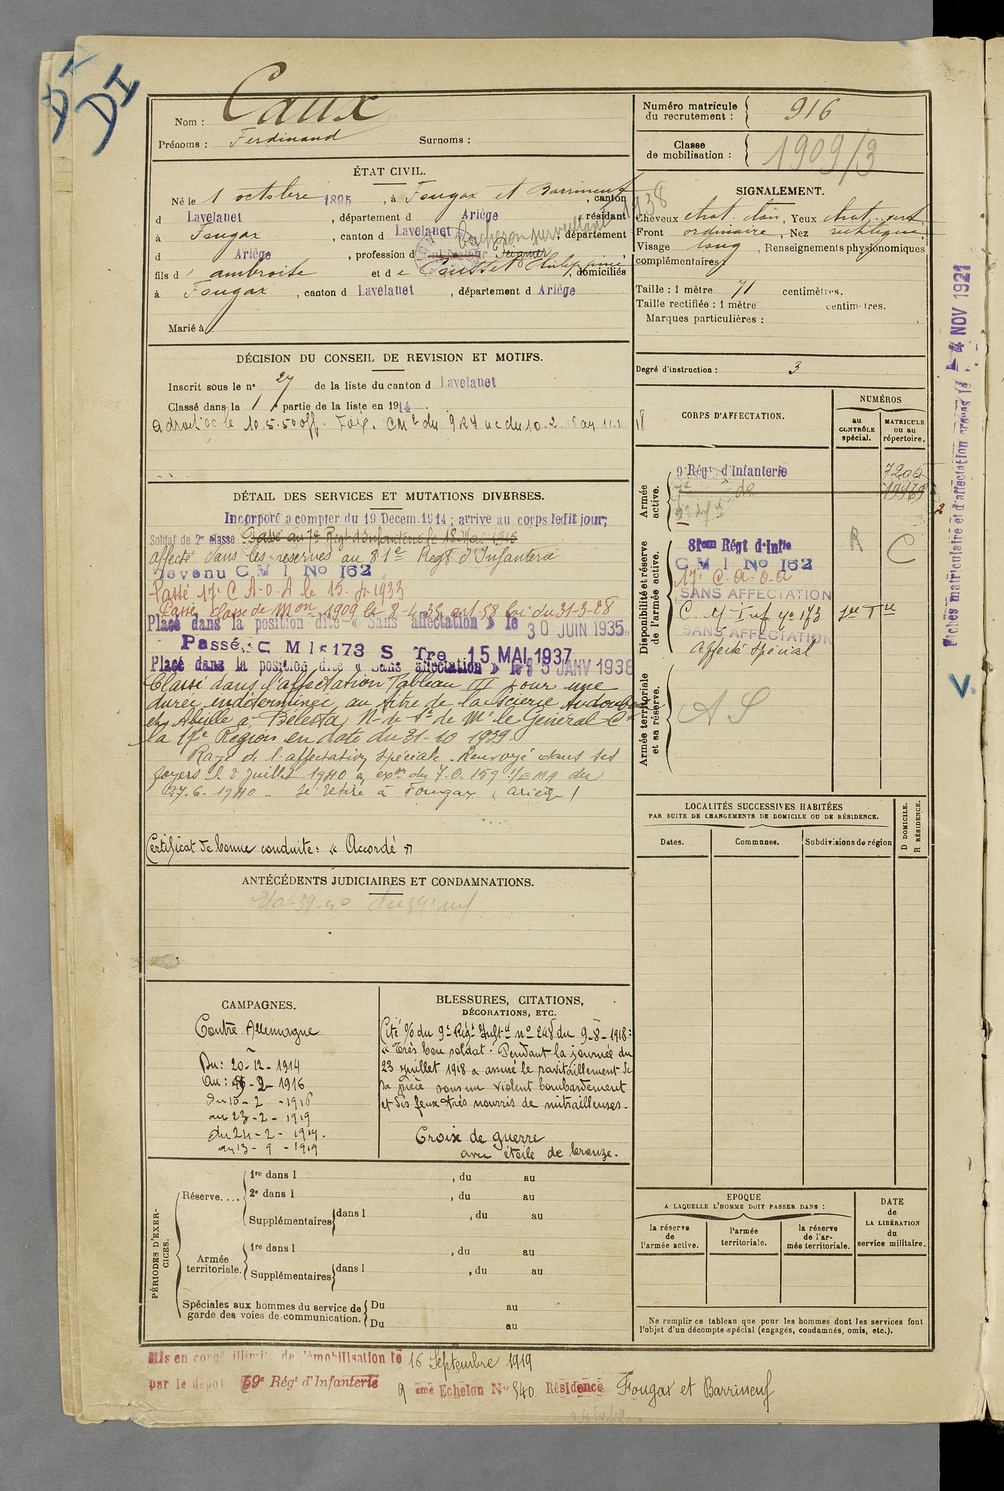 DI
DI
Nom : Caux
Prénoms : Ferdinand Surnoms :
ÉTAT CIVIL.
Né le 1 octobre 1895, à Fougax et Barrineuf, canton
d Lavelanet, département d Ariège, résidant
à Fougax, canton d Lavelanet, département
d Ariège, profession d
Bucheron surveillant
fils d' ambroise et d e Philippine, domiciliés
à Fougax, canton d Lavelanet, département d Ariège
Marié à
DÉCISION DU CONSEIL DE REVISION ET MOTIFS.
Inscrit sous le n° 27 de la liste du canton d Lavelanet
Classé dans la 1 partie de la liste en 1914
DÉTAIL DES SERVICES ET MUTATIONS DIVERSES.
Incorporé a compter du 19 Decem. 1914 ; arrive au corps ledit jour;
Soldat de 2e classe Passé au 7e Regt d'Infanterie le 18 Mai 1915
affecté dans les réserves au 81e Regt d'Infanterie
devenu C M I No 162
Passé 17e C.A.O.A le 15. 1933
Passé classe de Mon 1909 le 8-4-35 art. 58 loi du 31-3-28
Placé dans la position dite « Sans affectation » le 30 JUIN 1935
Passé C M I 173 S Tre 15 MAI 1937
Placé dans la position dite « Sans affectation » le 5 JANV 1938
Classé dans l'affectation Tableau III pour une
durée indéterminée au titre de la Scierie
et Abeille à Belesta N. de S. de Mr le Général Ct
la 17e Région en date du 31-10 1939
Rayé de l'affectation spéciale. Renvoyé dans ses
foyers le 2 Juillet 1940 du
27.6.1940 - se retire à Fougax (ariège)
Certificat de bonne conduite : « Accordé »
ANTÉCÉDENTS JUDICIAIRES ET CONDAMNATIONS.
CAMPAGNES.
Contre Allemagne
Du : 20-12-1914
au : -2-1916
du -2-1916
au 23-2-1919
du 24-2-1919.
au 13-9-1919
BLESSURES, CITATIONS,
DÉCORATIONS, ETC.
Cité % du 9e Régt Inftie n° 248 du 9-8-1918 :
« Très bon soldat. Pendant la journée du
23 juillet 1918 a assuré le ravitaillement de
sa pièce sous un violent bombardement
et des feux très nourris de mitrailleuses.
Croix de guerre
avec étoile de bronze.
PÉRIODES D'EXERCICES.
Réserve....
1re dans l , du au
2e dans l , du au
Supplémentaires dans l , du au
Armée territoriale.
1re dans l , du au
Supplémentaires dans l , du au
Spéciales aux hommes du service de
garde des voies de communication.
Du au
Du au
Numéro matricule
du recrutement : 916
Classe
de mobilisation : 1909/3
SIGNALEMENT.
Cheveux chat. clair, Yeux chat. vert
Front ordinaire, Nez rectiligne
Visage long, Renseignements physionomiques
complémentaires :
Taille : 1 mètre 71 centimètres.
Taille rectifiée : 1 mètre centimètres.
Marques particulières :
Degré d'instruction : 3
CORPS D'AFFECTATION.
NUMÉROS
au CONTRÔLE spécial.
MATRICULE ou au répertoire.
Armée active.
9e Régt d'Infanterie 7205
Disponibilité et réserve de l'armée active.
81eme Régt d'Infie R C
C M I No 162
17e C.A.O.A
SANS AFFECTATION
C. M. Inf. 173
SANS AFFECTATION
Affecté Spécial
Armée territoriale et sa réserve.
A S
LOCALITÉS SUCCESSIVES HABITÉES
PAR SUITE DE CHANGEMENTS DE DOMICILE OU DE RÉSIDENCE.
Dates. Communes. Subdivisions de région
D DOMICILE. R RÉSIDENCE.
EPOQUE
A LAQUELLE L'HOMME DOIT PASSER DANS :
la réserve de l'armée active.
l'armée territoriale.
la réserve de l'armée territoriale.
DATE de LA LIBÉRATION du service militaire.
Ne remplir ce tableau que pour les hommes dont les services font
l'objet d'un décompte spécial (engagés, condamnés, omis, etc.).
Fiches matriculaire et d'affectation 4 NOV 1921
V.
Mis en congé illimité de démobilisation le 16 Septembre 1919
par le dépôt 59e Régt d'Infanterie
9 eme Echelon No 540 Résidence Fougax et Barrineuf